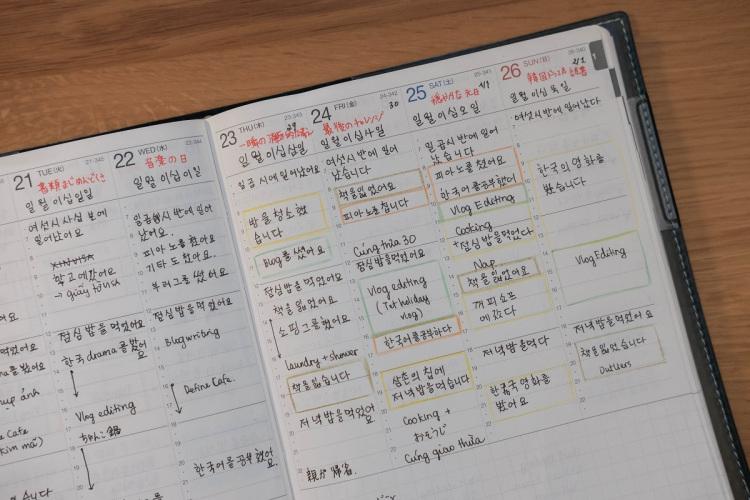 21 TUE(火) 21-345
일월 이십일일
여섯시 사십 분에
일어났어요
학교에 갔어요
→ giấy tờ USA
점심 밥을 먹었어요
한국 drama를 봤어요
Vlog editing
22 WED(水) 22-344
音楽の日
일월 이십이일
일곱시 반에 일어
났어요.
피아노를 쳤아요
기타도 쳤아요.
부러그를 썼어요
점심 밥을 먹었어요
Blog writing
Define Cafe.
한국어를 공부했어요.
23 THU(木) 23-343
일월 이십삼일
일곱 시에 일어났어요
방을 청소했
습니다
Blog를 썼어요
점심밥을 먹었어요
책을 읽었어요
쇼핑그를 했어요
laundry + shower
책을 읽습니다
저녁 밥을 먹었어요
24 FRI(金) 24-342
30
일월 이십사일
여섯시 반에 일어
났습니다
책을 읽었어요
피아노를 칩니다
Cúng thừa 30
점심밥을 먹었어요
Vlog editing
(Tet holiday
vlog)
한국어를 공부하다
삼촌의 집에
저녁밥을 먹습니다
Cooking +
おそうじ
Cúng giao thừa
25 SAT(土) 25-341
일월 이십오일
일곱시 반에 일어
났습니다
피아노를 쳤어요
한국어를 공부했어
Vlog Editing
Cooking
+점심 밥을 먹었다
Nap
책을 읽었어요
커피쇼프
에 갔다
저녁밥을 먹다
한국 영화를
봤어요
26 SUN(日) 26-340
일월 이십육일
여섯시 반에 일어났다
한국의 영화를
봤습니다
Vlog Editing
저녁밥을 먹었어요
책을 읽었습니다
Outliers
1